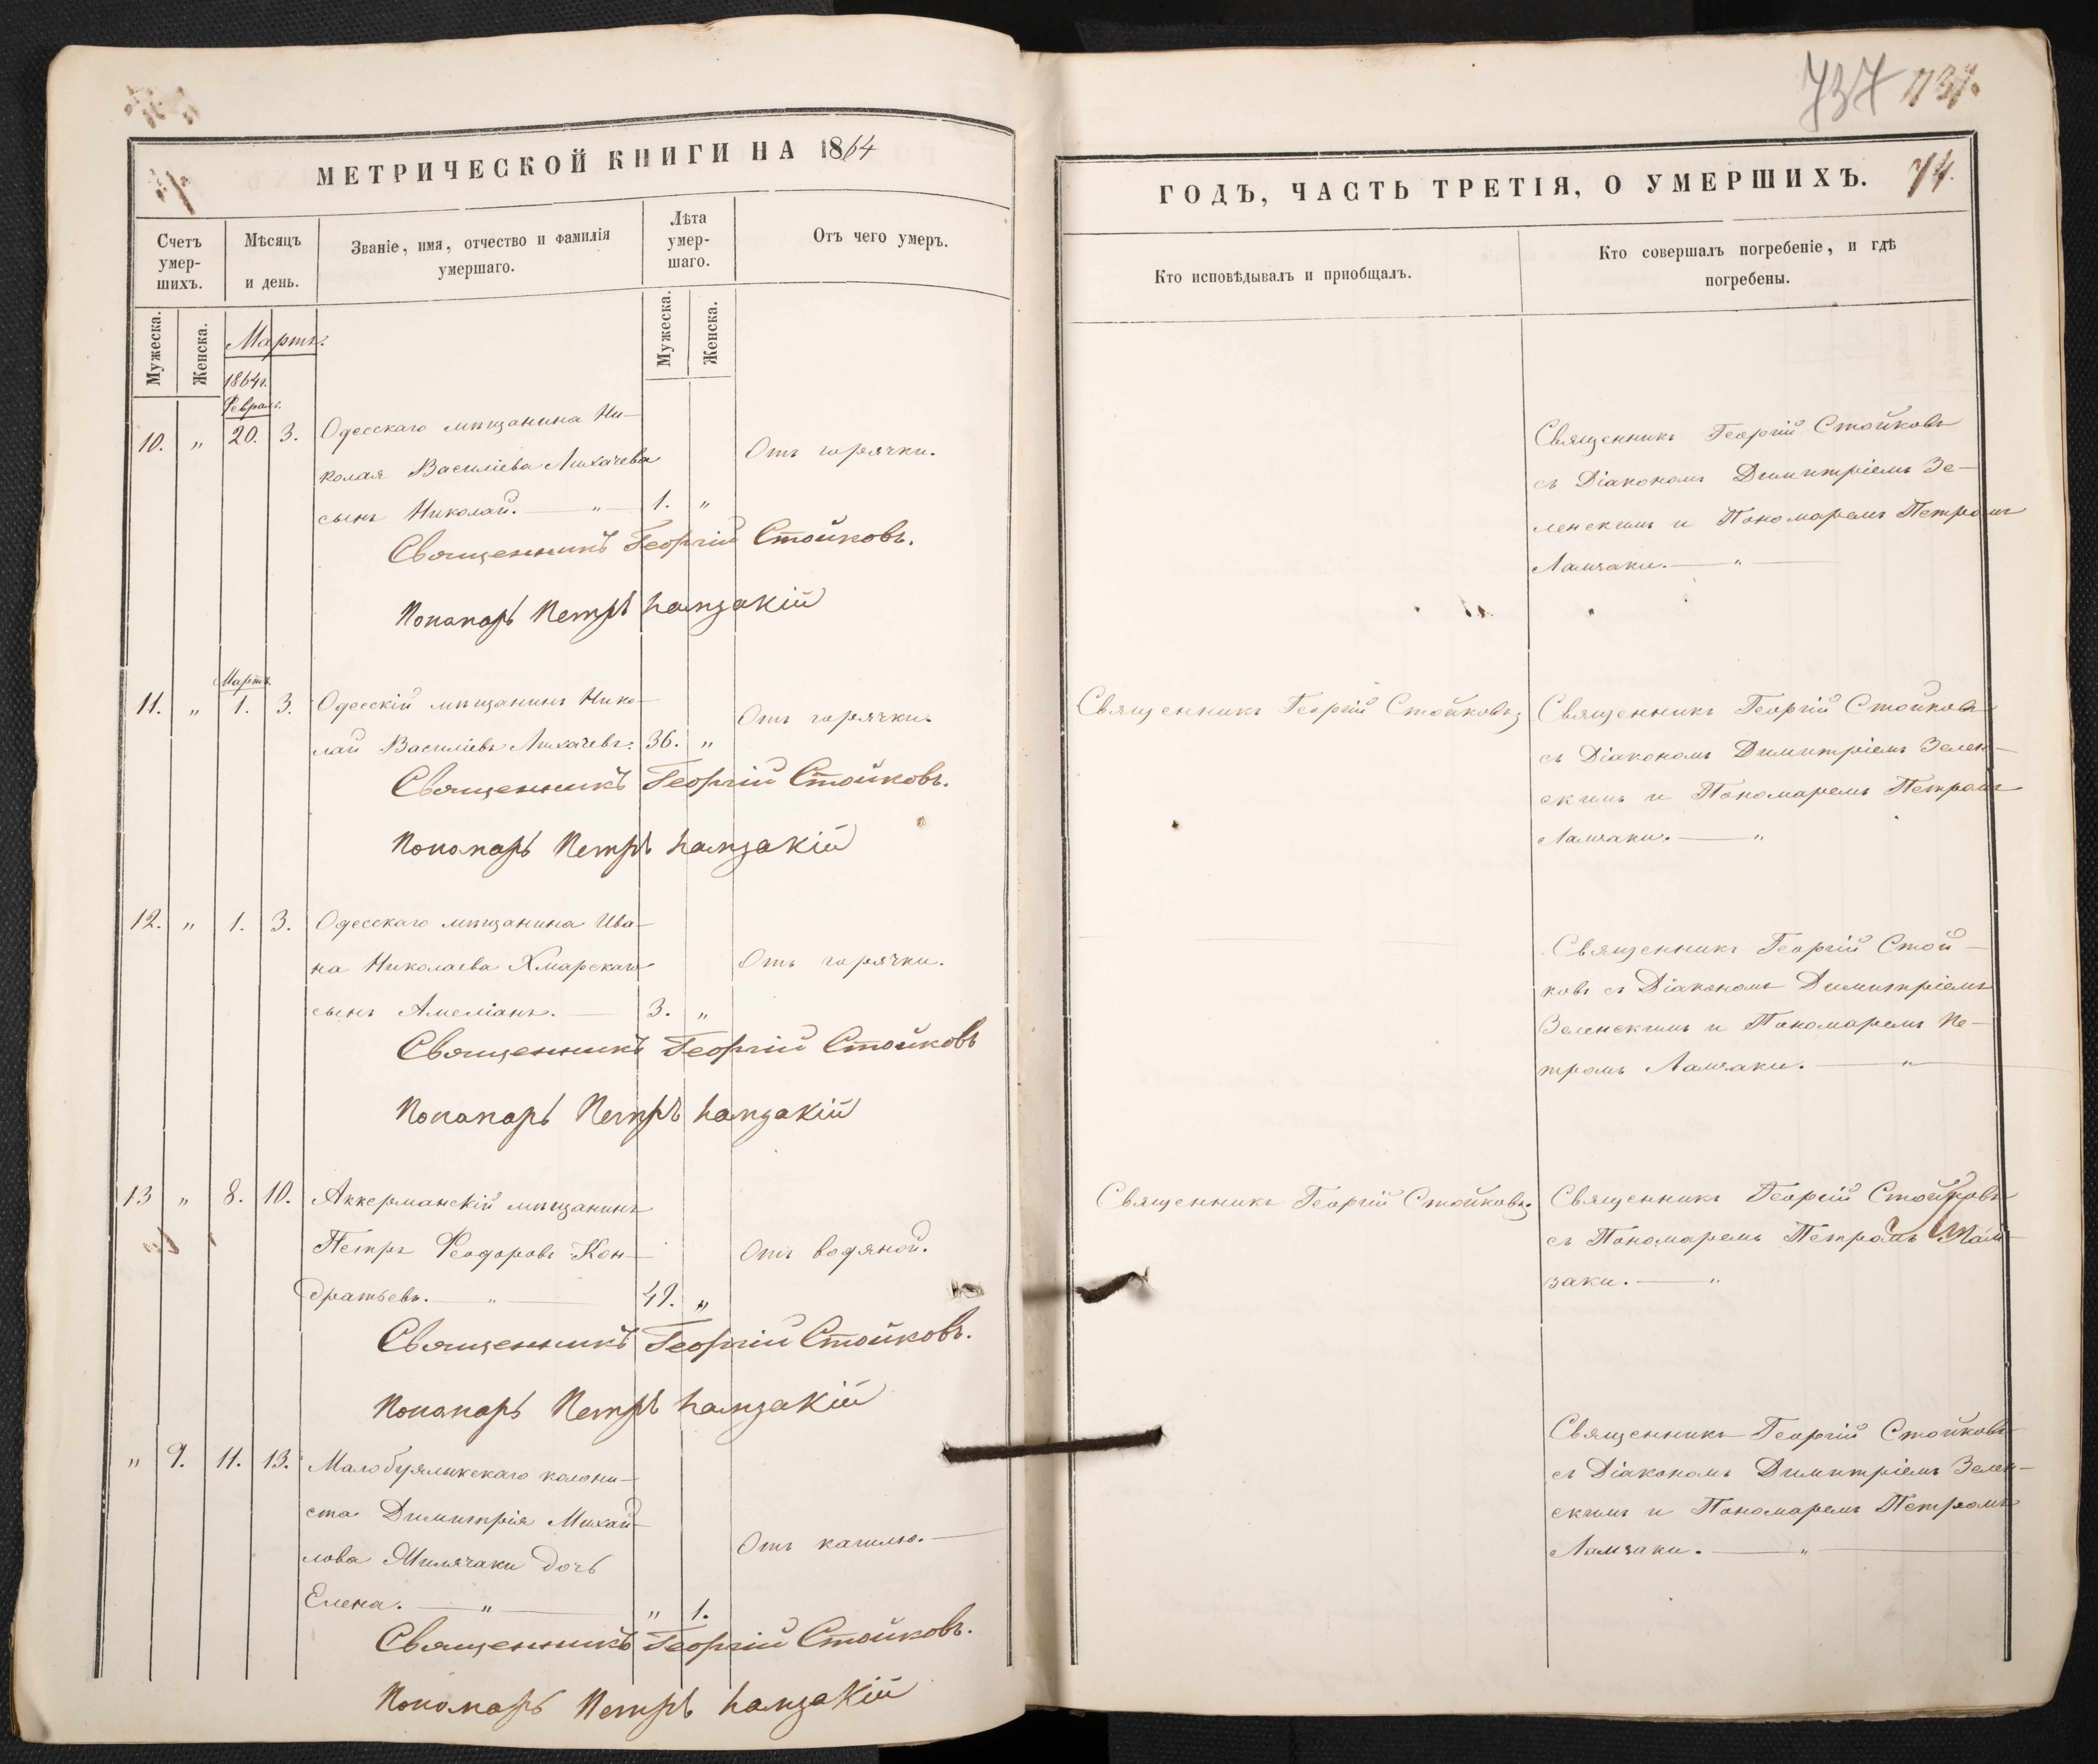 МЕТРИЧЕСКОЙ КНИГИ НА 1864
Счетъ умер-шихъ.
Мѣсяцъ и день.
Званіе, имя, отчество и фамилія умершаго.
Лѣта умер-шаго.
Отъ чего умеръ.
Мужеска.
Женска.
Мартъ.
Мужеска.
Женска.
1864г.
Февраль.
10. „ 20. 3. Одесскаго мѣщанина Ни-
колая Василіева Лихачева
Отъ горячки.
сынъ Николай. — „ — 1. „
Священникъ Георгій Стойковъ.
Пономарь Петръ Ламзакій
Мартъ.
11. „ 1. 3. Одесскій мѣщанинъ Нико-
Отъ горячки.
лай Василіевъ Лихачевъ. 36. „
Священникъ Георгій Стойковъ.
Пономарь Петръ Ламзакій
12. „ 1. 3. Одесскаго мѣщанина Ива-
на Николаева Хмарскаго
Отъ горячки.
сынъ Амеліанъ. — 3. „
Священникъ Георгій Стойковъ
Пономарь Петръ Ламзакій
13 „ 8. 10. Аккерманскій мѣщанинъ
Петръ Ѳеодоровъ Кон-
Отъ водяной.
дратьевъ. — „ — 49. „
Священникъ Георгій Стойковъ.
Пономарь Петръ Ламзакій
„ 9. 11. 13. Малобуялыкскаго колони-
ста Димитрія Михай-
лова Милячаки дочь
Отъ кашлю. —
Елена. — „ — „ 1.
Священникъ Георгій Стойковъ.
Пономарь Петръ Ламзакій
737
737.
ГОДЪ, ЧАСТЬ ТРЕТІЯ, О УМЕРШИХЪ. 74.
Кто исповѣдывалъ и пріобщалъ.
Кто совершалъ погребеніе, и гдѣ
погребены.
Священникъ Георгій Стойковъ
съ Діакономъ Димитріемъ Зе-
ленскимъ и Пономаремъ Петромъ
Ламзаки. — „ —
Священникъ Георгій Стойковъ;
Священникъ Георгій Стойковъ
съ Діакономъ Димитріемъ Зелен-
скимъ и Пономаремъ Петромъ
Ламзаки. — „
Священникъ Георгій Стой-
ковъ съ Діакономъ Димитріемъ
Зеленскимъ и Пономаремъ Пе-
тромъ Ламзаки. — „ —
Священникъ Георгій Стойковъ;
Священникъ Георгій Стойковъ
съ Пономаремъ Петромъ Лам-
заки. — „
Священникъ Георгій Стойковъ
съ Діакономъ Димитріемъ Зелен-
скимъ и Пономаремъ Петромъ
Ламзаки. — „ —